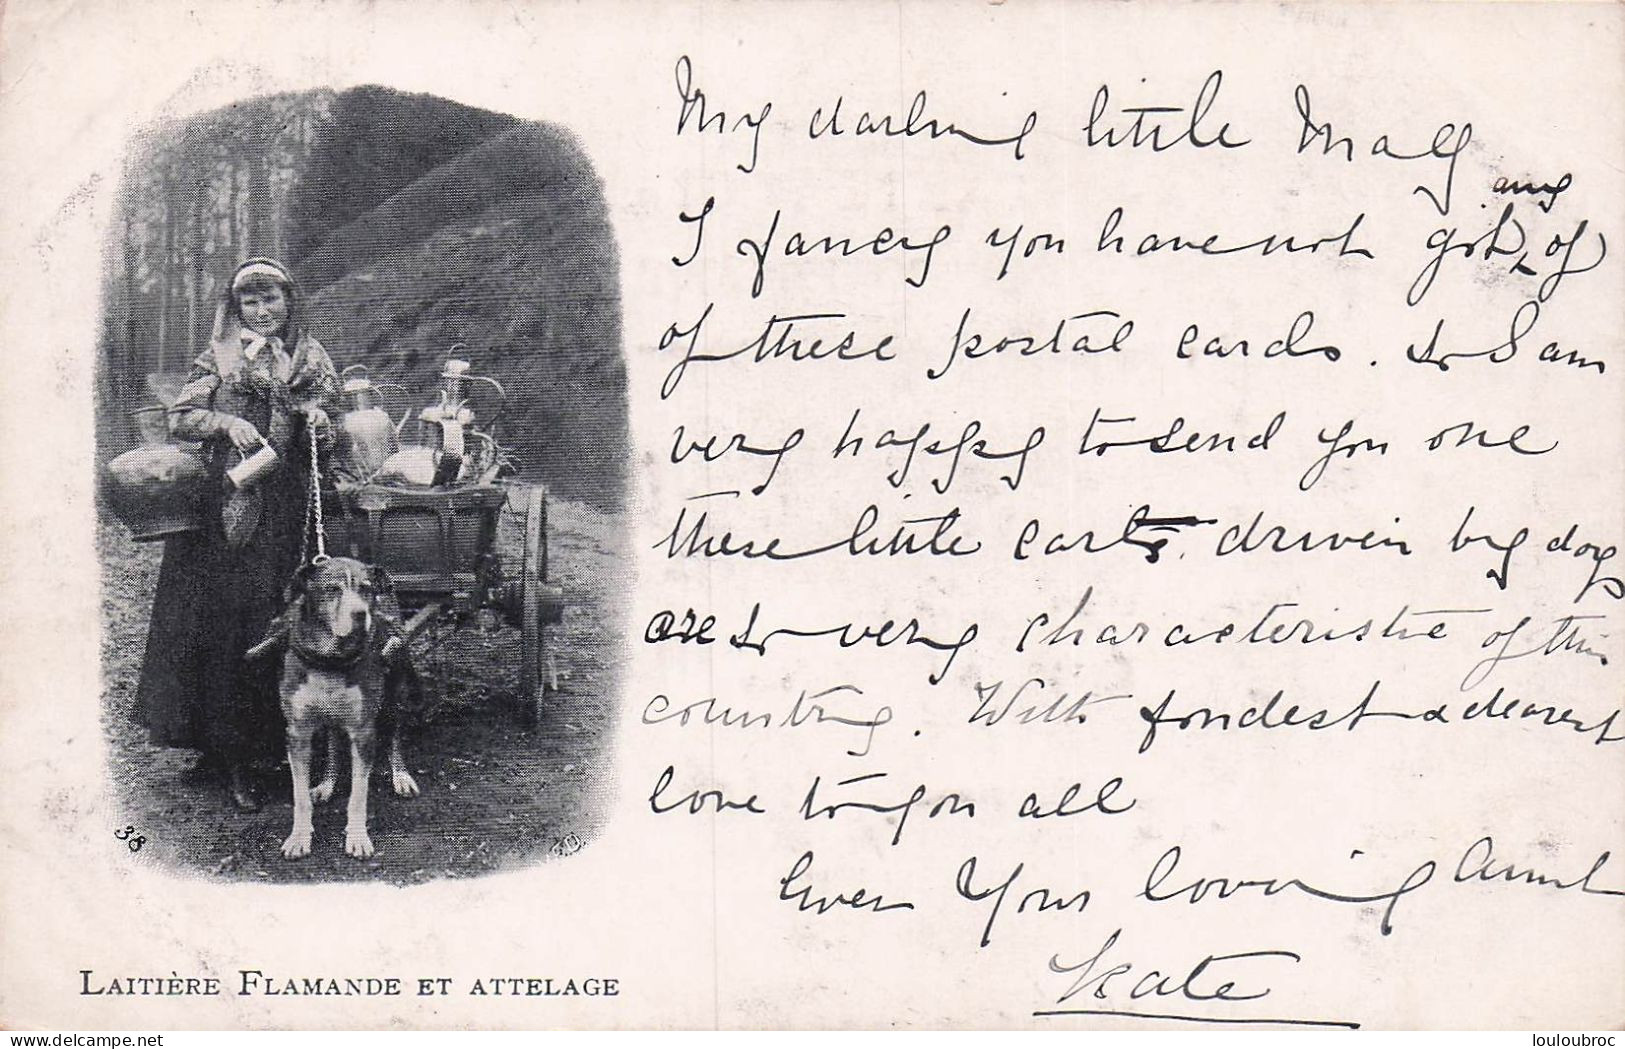 My darling little Mall
I fancy you have not got any of
of these postal cards. So I am
very happy to send you one
these little carts driven by dogs
are so very characteristic of this
country. With fondest & dearest
love to you all
Ever Your loving Aunt
Kate
38
LAITIÈRE FLAMANDE ET ATTELAGE
delcampe.net
louloubroc